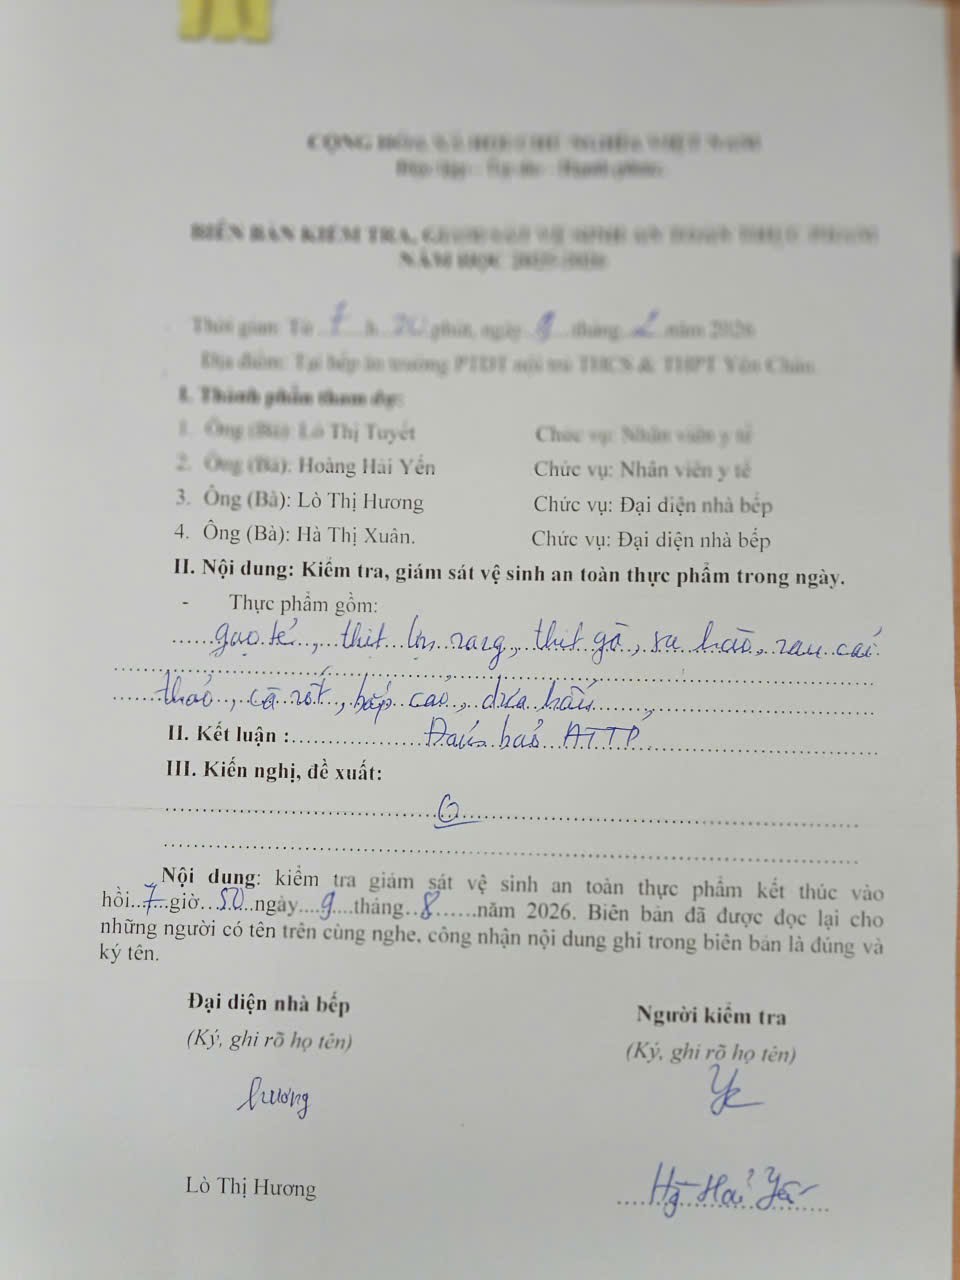 CỘNG HÒA XÃ HỘI CHỦ NGHĨA VIỆT NAM
Độc lập - Tự do - Hạnh phúc
BIÊN BẢN KIỂM TRA, GIÁM SÁT VỆ SINH AN TOÀN THỰC PHẨM
NĂM HỌC 2025-2026
Thời gian: Từ 7 h 20 phút, ngày 9 tháng 2 năm 2026
Địa điểm: Tại bếp ăn trường PTDT nội trú THCS & THPT Yên Châu
I. Thành phần tham dự:
1. Ông (Bà): Lò Thị Tuyết Chức vụ: Nhân viên y tế
2. Ông (Bà): Hoàng Hải Yến Chức vụ: Nhân viên y tế
3. Ông (Bà): Lò Thị Hương Chức vụ: Đại diện nhà bếp
4. Ông (Bà): Hà Thị Xuân. Chức vụ: Đại diện nhà bếp
II. Nội dung: Kiểm tra, giám sát vệ sinh an toàn thực phẩm trong ngày.
- Thực phẩm gồm:
gạo tẻ, thịt lợn rang, thịt gà, su hào, rau cải
thảo, cà rốt, bắp cao, dưa hấu
II. Kết luận : Đảm bảo ATTP
III. Kiến nghị, đề xuất:
Nội dung: kiểm tra giám sát vệ sinh an toàn thực phẩm kết thúc vào
hồi 7 giờ 50 ngày 9 tháng 8 năm 2026. Biên bản đã được đọc lại cho
những người có tên trên cùng nghe, công nhận nội dung ghi trong biên bản là đúng và
ký tên.
Đại diện nhà bếp Người kiểm tra
(Ký, ghi rõ họ tên) (Ký, ghi rõ họ tên)
Hương
Lò Thị Hương Hg Hải Yến